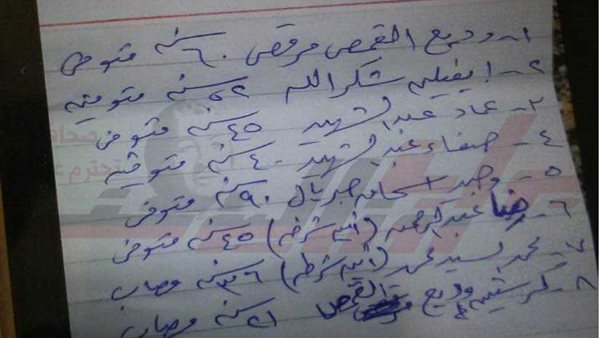 ١- وديع القمص مرقص ٦٠ سنة متوفى
٢- ايفيلين شكر الله ٥٢ سنه متوفيه
٣- عماد عبد الشهيد ٤٥ سنه متوفى
٤- صفاء عبد الشهيد ٤٠ سنه متوفيه
٥- وديد اسحاق جبريال ٩٠ سنه متوفى
٦- رضا عبد الرحمن (أمين شرطه) ٤٥ سنه متوفى
٧- محمد السيد محمد (أمين شرطه) ٣٦ سنه مصاب
٨- كرستين وديع القمص ٢١ سنه مصاب